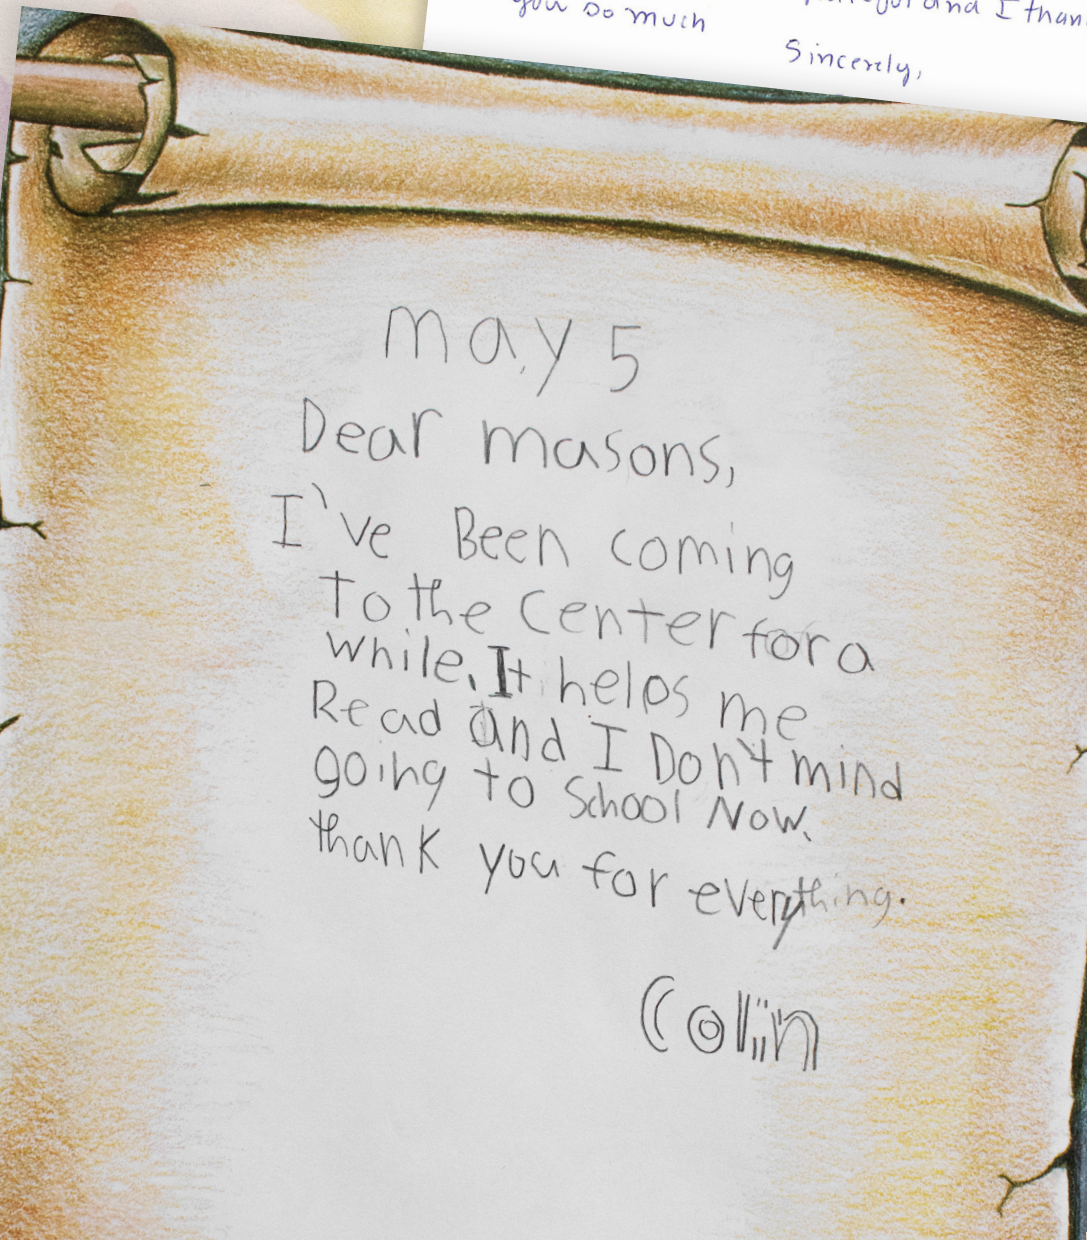 you so much
and I than
Sincerely,
May 5
Dear masons,
I've Been coming
To the Center for a
while. It helps me
Read and I Don't mind
going to School Now.
thank you for everything.
Colin